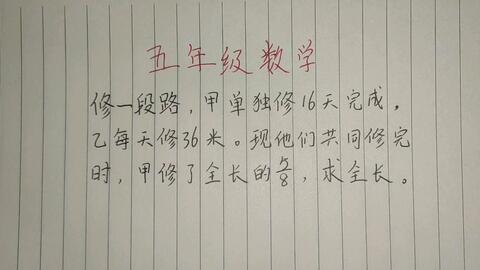 五年级数学
修一段路，甲单独修16天完成，
乙每天修36米。现他们共同修完
时，甲修了全长的5/8，求全长。